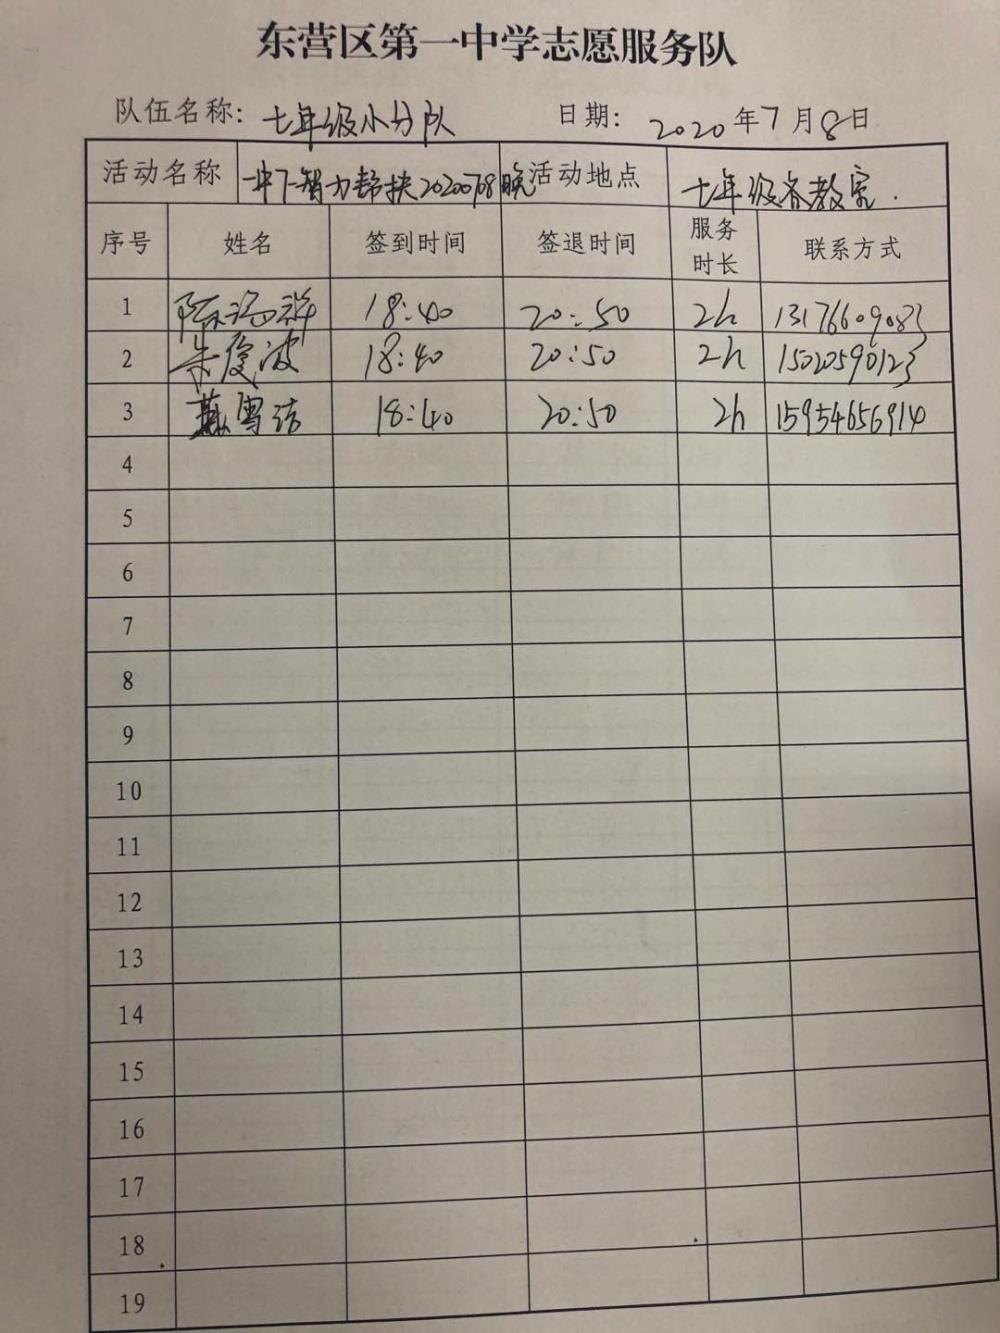 东营区第一中学志愿服务队
队伍名称: 七年级小分队 日期: 2020年7月8日
活动名称 一中下智力帮扶20200708晚 活动地点 七年级各教室.
序号 姓名 签到时间 签退时间 服务时长 联系方式
1 18:40 20:50 2h 13176609083
2 朱俊波 18:40 20:50 2h 15020590123
3 18:40 20:50 2h 15954656914
4
5
6
7
8
9
10
11
12
13
14
15
16
17
18
19